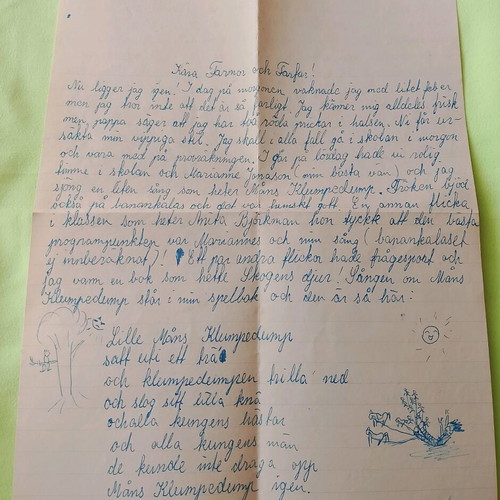 Kära Farmor och Farfar!
Nu ligger jag igen! I dag på morgonen vaknade jag med litet feber
men jag tror inte att det är så farligt. Jag känner mig alldeles frisk
men pappa säger att jag har två röda prickar i halsen. Ni får ur-
säkta min vippiga stil. Jag skall i alla fall gå i skolan i morgon
och vara med på provräkningen. I går på lördag hade vi rolig
timme i skolan och Marianne Jonason (min bästa vän) och jag
sjöng en liten sång som heter Måns Klumpedump. Fröken bjöd
också på banankalas och det var hemskt gott. En annan flicka
i klassen som heter Anita Björkman hon tyckte att den bästa
programpunkten var Mariannes och min sång (banankalaset
ej inberäknat)! Ett par andra flickor hade frågesport och
jag vann en bok som hette Skogens djur! Sången om Måns
Klumpedump står i min spelbok och den är så här:
Lille Måns Klumpedump
satt uti ett trä
och klumpedumpen trilla' ned
och slog sitt lilla knä
och alla kungens hästar
och alla kungens män
de kunde inte draga opp
Måns Klumpedump igen.